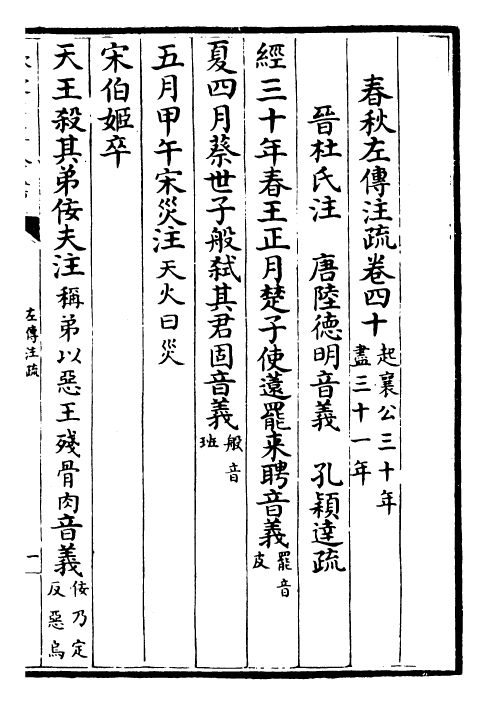 春秋左傳注疏卷四十起襄公三十年盡三十一年
晉杜氏注　唐陸德明音義　孔穎達疏
經三十年春王正月楚子使薳罷來聘音義罷音皮
夏四月蔡世子般弑其君固音義般音班
五月甲午宋災注天火曰災
宋伯姬卒
天王殺其弟佞夫注稱弟以惡王殘骨肉音義佞乃定反惡烏
左傳注疏
一